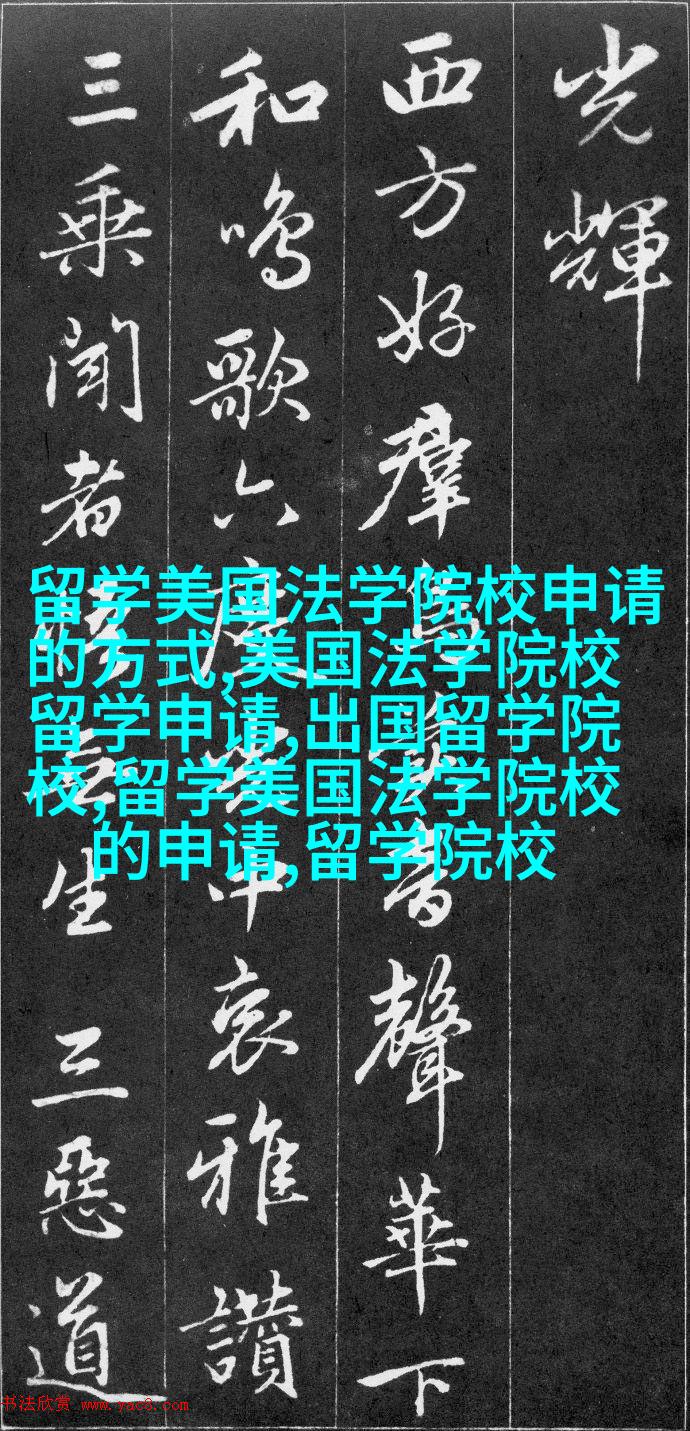 光輝
西方好羣鳥音聲華下
和鳴歌六度中哀雅讚
三乘聞者無生三惡道
留学美国法学院校申请
的方式,美国法学院校
留学申请,出国留学院
校,留学美国法学院校
的申请,留学院校
书法欣赏 www.yac8.com